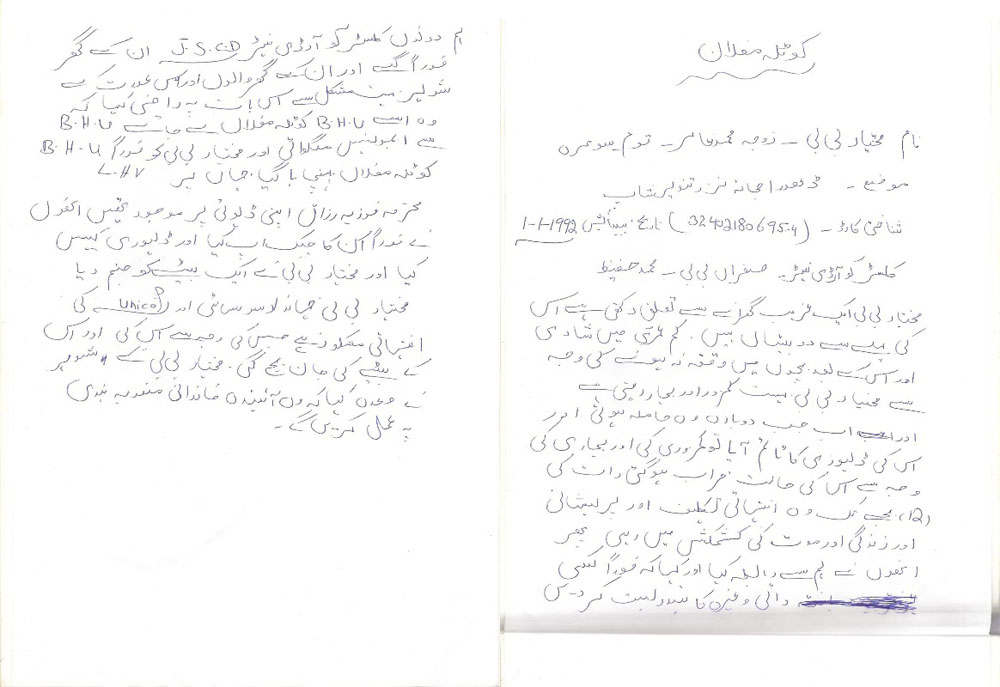 کوٹلہ مغلاں
نام مختیار بی بی – زوجہ محمد عامر – قوم سومرہ
موضع – ڈھورا حجانہ نزد تنویر شاپ
شناختی کارڈ – (324021806954) تاریخ پیدائش 1-1-1992
کلسٹر کوآرڈی نیٹر – صغراں بی بی – محمد حفیظ
مختیار بی بی ایک غریب گھرانے سے تعلق رکھتی ہے اس
کی پہلے سے دو بیٹیاں ہیں۔ کم عمری میں شادی
اور اس کے بعد بچوں میں وقفہ نہ ہونے کی وجہ
سے مختیار بی بی بہت کمزور اور بیمار رہتی ہے
اور اب جب دوبارہ وہ حاملہ ہوئی اور
اس کی ڈلیوری کا ٹائم آیا تو کمزوری کی اور بیماری کی
وجہ سے اس کی حالت خراب ہو گئی رات کی
(12) بجے تک وہ انتہائی تکلیف اور پریشانی
اور زندگی اور موت کی کشمکش میں رہی پھر
انھوں نے ہم سے رابطہ کیا اور کہا کہ فوراً کسی
دائی وغیرہ کا بندوبست کر دیں
ہم دونوں کلسٹر کوآرڈی نیٹر J.S.C.D ان کے گھر
فوراً گئے اور ان کے گھر والوں اور اس عورت کے
شوہر بہت مشکل سے اس بات پہ راضی کیا کہ
وہ اسے B.H.U کوٹلہ مغلاں لے جائے B.H.U
سے ایمبولینس منگوائی اور مختیار بی بی کو فوراً B.H.U
کوٹلہ مغلاں پہنچایا گیا جہاں پر L.H.V
محترمہ فوزیہ رزاق اپنی ڈیوٹی پر موجود تھیں انھوں
نے فوراً اس کا چیک اپ کیا اور ڈلیوری کیس
کیا اور مختیار بی بی نے ایک بیٹے کو جنم دیا
مختیار بی بی سوسائٹی اور Unicef کی
انتہائی مشکور ہے جس کی وجہ سے اس کی اور اس
کے بیٹے کی جان بچ گئی۔ مختیار بی بی کے شوہر
نے وعدہ کیا کہ وہ آئیندہ خاندانی منصوبہ بندی
پہ عمل کریں گے۔